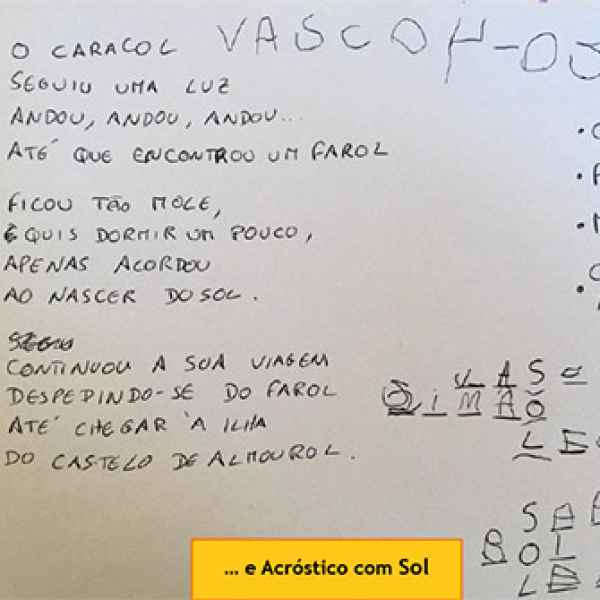 O CARACOL
SEGUIU UMA LUZ
ANDOU, ANDOU, ANDOU...
ATÉ QUE ENCONTROU UM FAROL
FICOU TÃO MOLE,
E QUIS DORMIR UM POUCO,
APENAS ACORDOU
AO NASCER DO SOL.
CONTINUOU A SUA VIAGEM
DESPEDINDO-SE DO FAROL
ATÉ CHEGAR À ILHA
DO CASTELO DE ALMOUROL.
VASCO
VAS
SIMÃO
LE
SA
SOL
LE
... e Acróstico com Sol